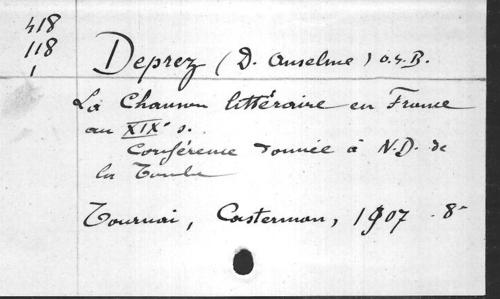 418
118
1
Deprez (D. Anselme) o.s.B.
La Chanson littéraire en France
au XIXe s.
Conférence donnée à N.D. de
la Tombe
Tournai, Casterman, 1907 8°